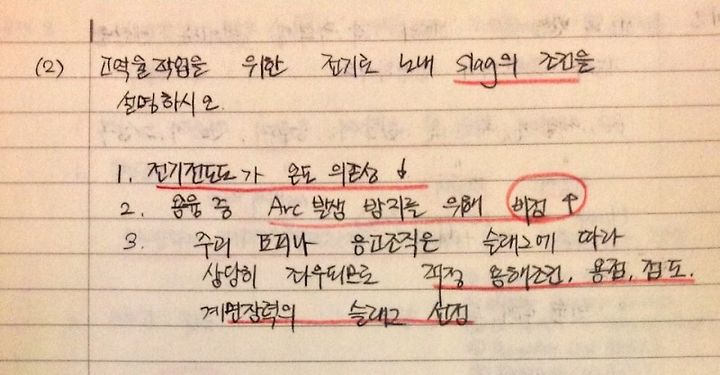 (2) 고역율작업을 위한 전기로 노내 slag의 조건을
설명하시오.
1. 전기전도도가 온도 의존성 ↓
2. 용융 중 Arc 발생 방지를 위해 비점 ↑
3. 주괴 표피나 응고조직은 슬래그에 따라
상당히 좌우되므로 적정 용해조건, 융점, 점도.
계면장력의 슬래그 선정